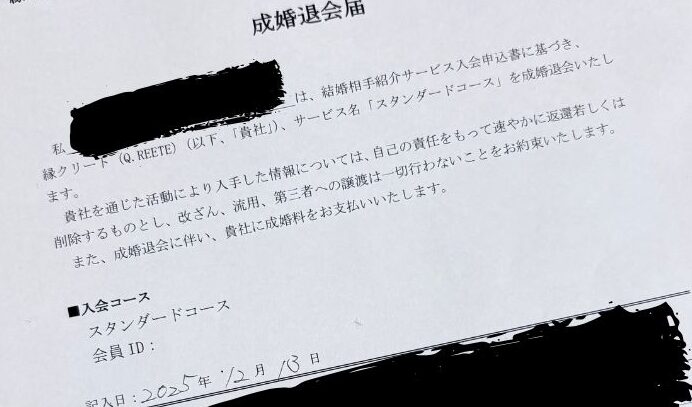 成婚退会届
私 は、結婚相手紹介サービス入会申込書に基づき、
縁クリード（Q.REETE）（以下、「貴社」）、サービス名「スタンダードコース」を成婚退会いたし
ます。
貴社を通じた活動により入手した情報については、自己の責任をもって速やかに返還若しくは
削除するものとし、改ざん、流用、第三者への譲渡は一切行わないことをお約束いたします。
また、成婚退会に伴い、貴社に成婚料をお支払いいたします。
■入会コース
スタンダードコース
会員 ID：
記入日：2025年 12月 13日